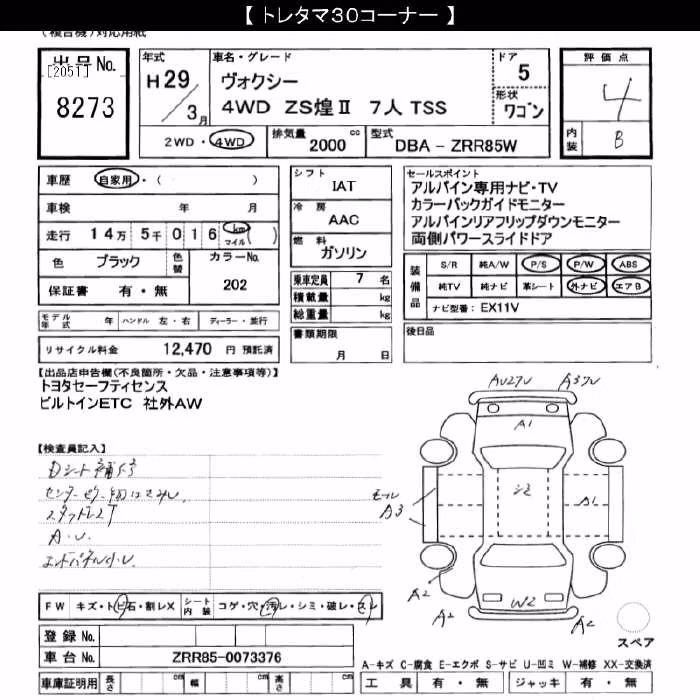 【 トレタマ３０コーナー 】
(複合機)対応用紙
出品No.
[2051]
8273
年式
H 29
/3月
車名・グレード
ヴォクシー
4WD ZS煌Ⅱ 7人 TSS
ドア
5
形状
ワゴン
2WD・4WD
排気量
2000 cc
型式
DBA - ZRR85W
評価点
4
内装
B
車歴 自家用・( )
車検 年 月
走行 14万 5千 016 km マイル ( )
色 ブラック 色替 カラーNo.
202
保証書 有・無
モデル年式 年 ハンドル 左・右 ディーラー・並行
リサイクル料金 12,470 円 預託済
シフト
IAT
冷房
AAC
燃料
ガソリン
乗車定員 7 名
積載量 kg
総重量 kg
書類期限
月 日
セールスポイント
アルパイン専用ナビ・TV
カラーバックガイドモニター
アルパインリアフリップダウンモニター
両側パワースライドドア
装備品
S/R 純A/W P/S P/W ABS
純TV 純ナビ 革シート 外ナビ エアB
ナビ型番: EX11V
後日品
【出品店申告欄(不良箇所・欠品・注意事項等)】
トヨタセーフティセンス
ビルトインETC 社外AW
【検査員記入】
Dシート補修
スタッドレスT
A.U.
エンドパネル小U
AU27U A37U
A1
シミ
モール
A3
A1
A2
A2
W2
A2
スペア
FW キズ・トビ石・割レX シート内装 コゲ・穴・汚レ・シミ・破レ・スレ
登録No.
車台No. ZRR85-0073376
車庫証明用 長さ cm 幅 cm 高さ cm
A-キズ C-腐食 E-エクボ S-サビ U-凹ミ W-補修 XX-交換済
工具 有・無 ジャッキ 有・無